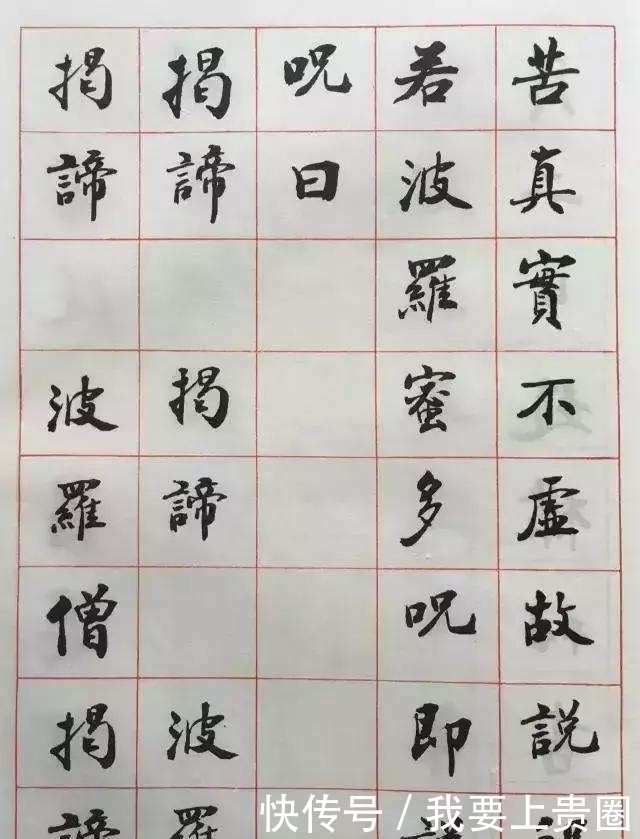 苦真實不虛故説
若波羅蜜多呪即
呪曰
揭諦 揭諦 波羅
揭諦 波羅僧揭諦
快传号/我要上贵圈